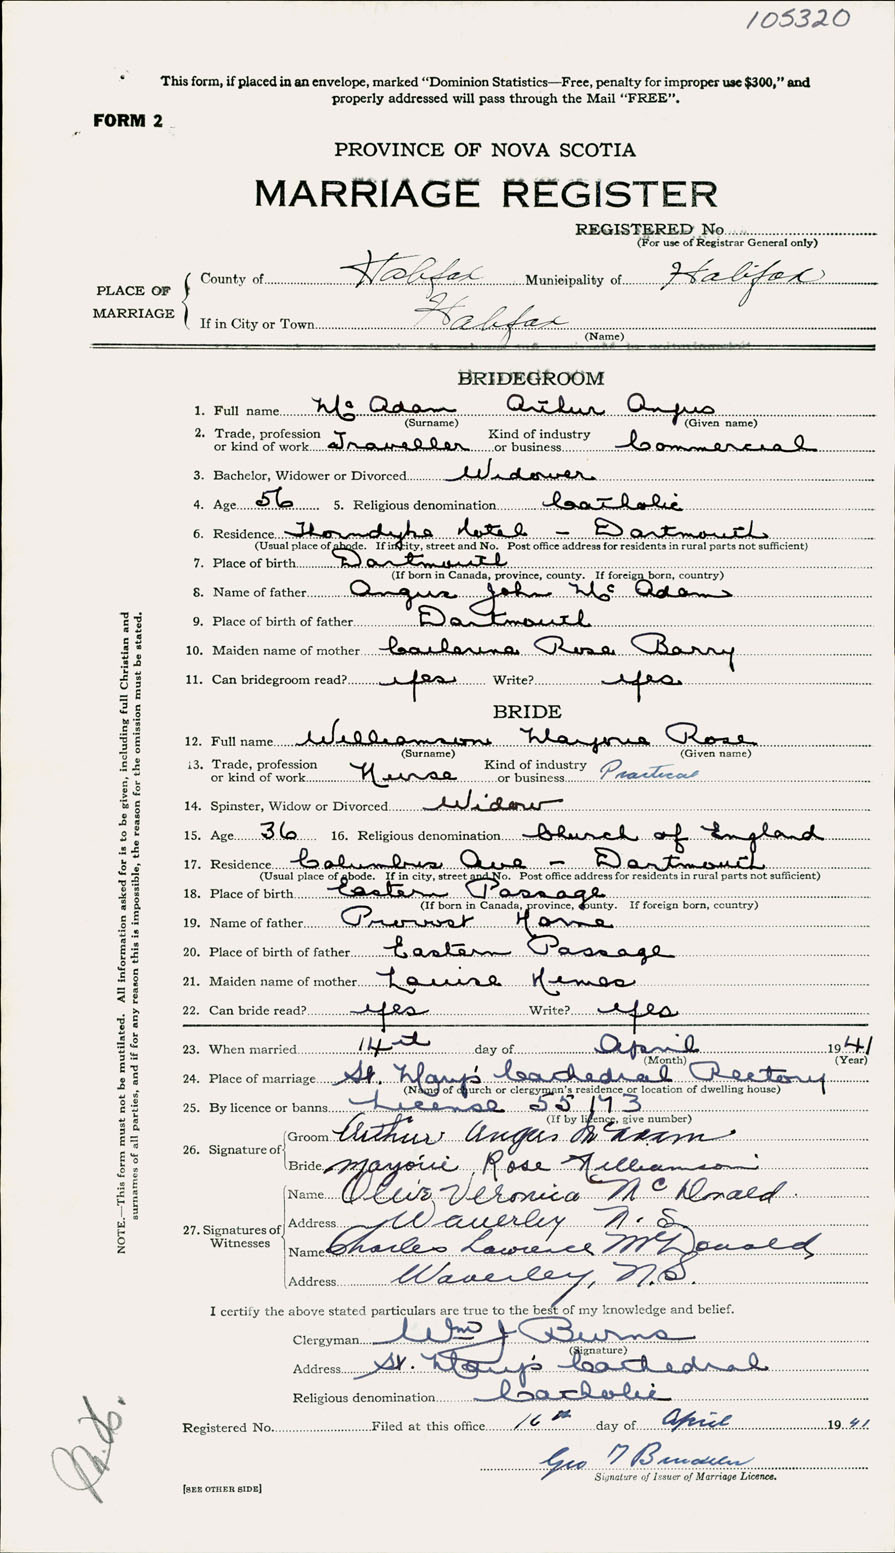 105320
This form, if placed in an envelope, marked “Dominion Statistics—Free, penalty for improper use $300,” and
properly addressed will pass through the Mail “FREE”.
FORM 2
PROVINCE OF NOVA SCOTIA
MARRIAGE REGISTER
REGISTERED No
(For use of Registrar General only)
PLACE OF MARRIAGE
County of Halifax Municipality of Halifax
If in City or Town Halifax
(Name)
BRIDEGROOM
1. Full name McAdam Arthur Angus
(Surname) (Given name)
2. Trade, profession or kind of work Traveller Kind of industry or business Commercial
3. Bachelor, Widower or Divorced Widower
4. Age 56 5. Religious denomination Catholic
6. Residence Thorndyke Hotel - Dartmouth
(Usual place of abode. If in city, street and No. Post office address for residents in rural parts not sufficient)
7. Place of birth Dartmouth
(If born in Canada, province, county. If foreign born, country)
8. Name of father Angus John McAdam
9. Place of birth of father Dartmouth
10. Maiden name of mother Catherine Rose Barry
11. Can bridegroom read? yes Write? yes
BRIDE
12. Full name Williamson Marjorie Rose
(Surname) (Given name)
13. Trade, profession or kind of work Nurse Kind of industry or business Practical
14. Spinster, Widow or Divorced Widow
15. Age 36 16. Religious denomination Church of England
17. Residence Columbus Ave - Dartmouth
(Usual place of abode. If in city, street and No. Post office address for residents in rural parts not sufficient)
18. Place of birth Eastern Passage
(If born in Canada, province, county. If foreign born, country)
19. Name of father Provost Horne
20. Place of birth of father Eastern Passage
21. Maiden name of mother Louise Himes
22. Can bride read? yes Write? yes
23. When married 14th day of April 1941
(Month) (Year)
24. Place of marriage St. Mary's Cathedral Rectory
(Name of church or clergyman's residence or location of dwelling house)
25. By licence or banns License 55173
(If by licence, give number)
26. Signature of
Groom Arthur Angus McAdam
Bride Marjorie Rose Williamson
27. Signatures of Witnesses
Name Olive Veronica McDonald
Address Waverley N.S.
Name Charles Lawrence McDonald
Address Waverley, N.S.
I certify the above stated particulars are true to the best of my knowledge and belief.
Clergyman Wm J Burns
(Signature)
Address St. Mary's Cathedral
Religious denomination Catholic
Registered No. Filed at this office 16th day of April 1941
Geo
Signature of Issuer of Marriage Licence.
[SEE OTHER SIDE]
NOTE.—This form must not be mutilated. All information asked for is to be given, including full Christian and
surnames of all parties, and if for any reason this is impossible, the reason for the omission must be stated.